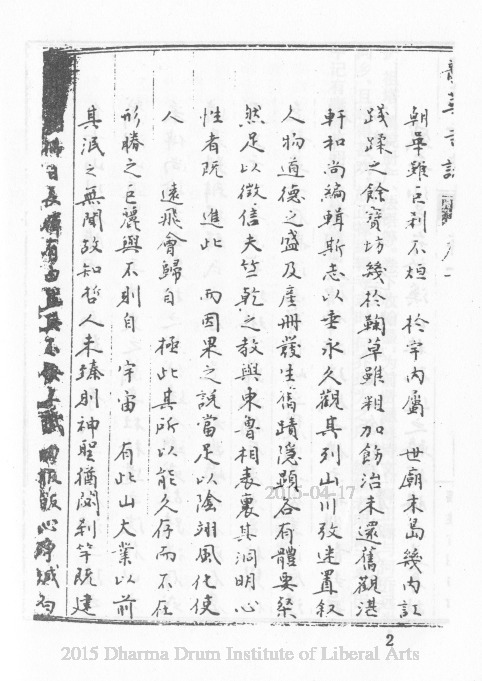 朝革雖巨刹不烜 於宇內屬 世廟末島幾內訌
踐蹂之餘寶坊幾於鞠草雖粗加飭治未還舊觀湛
軒和尚編輯斯志以垂永久觀其列山川攷建置敘
人物道德之盛及產冊發生舊蹟隱顯各有體要粲
然足以徵信夫竺乾之教與東魯相表裏其洞明心
性者既 進此 而因果之說當足以陰翊風化使
人 遠飛會歸自 極此其所以能久存而不在
形勝之巨麗與不則自 宇宙 有此山大業以前
其泯之無聞故知哲人未臻則神聖猶閟刹竿既建
日長
心
2015-04-17
2
2015 Dharma Drum Institute of Liberal Arts